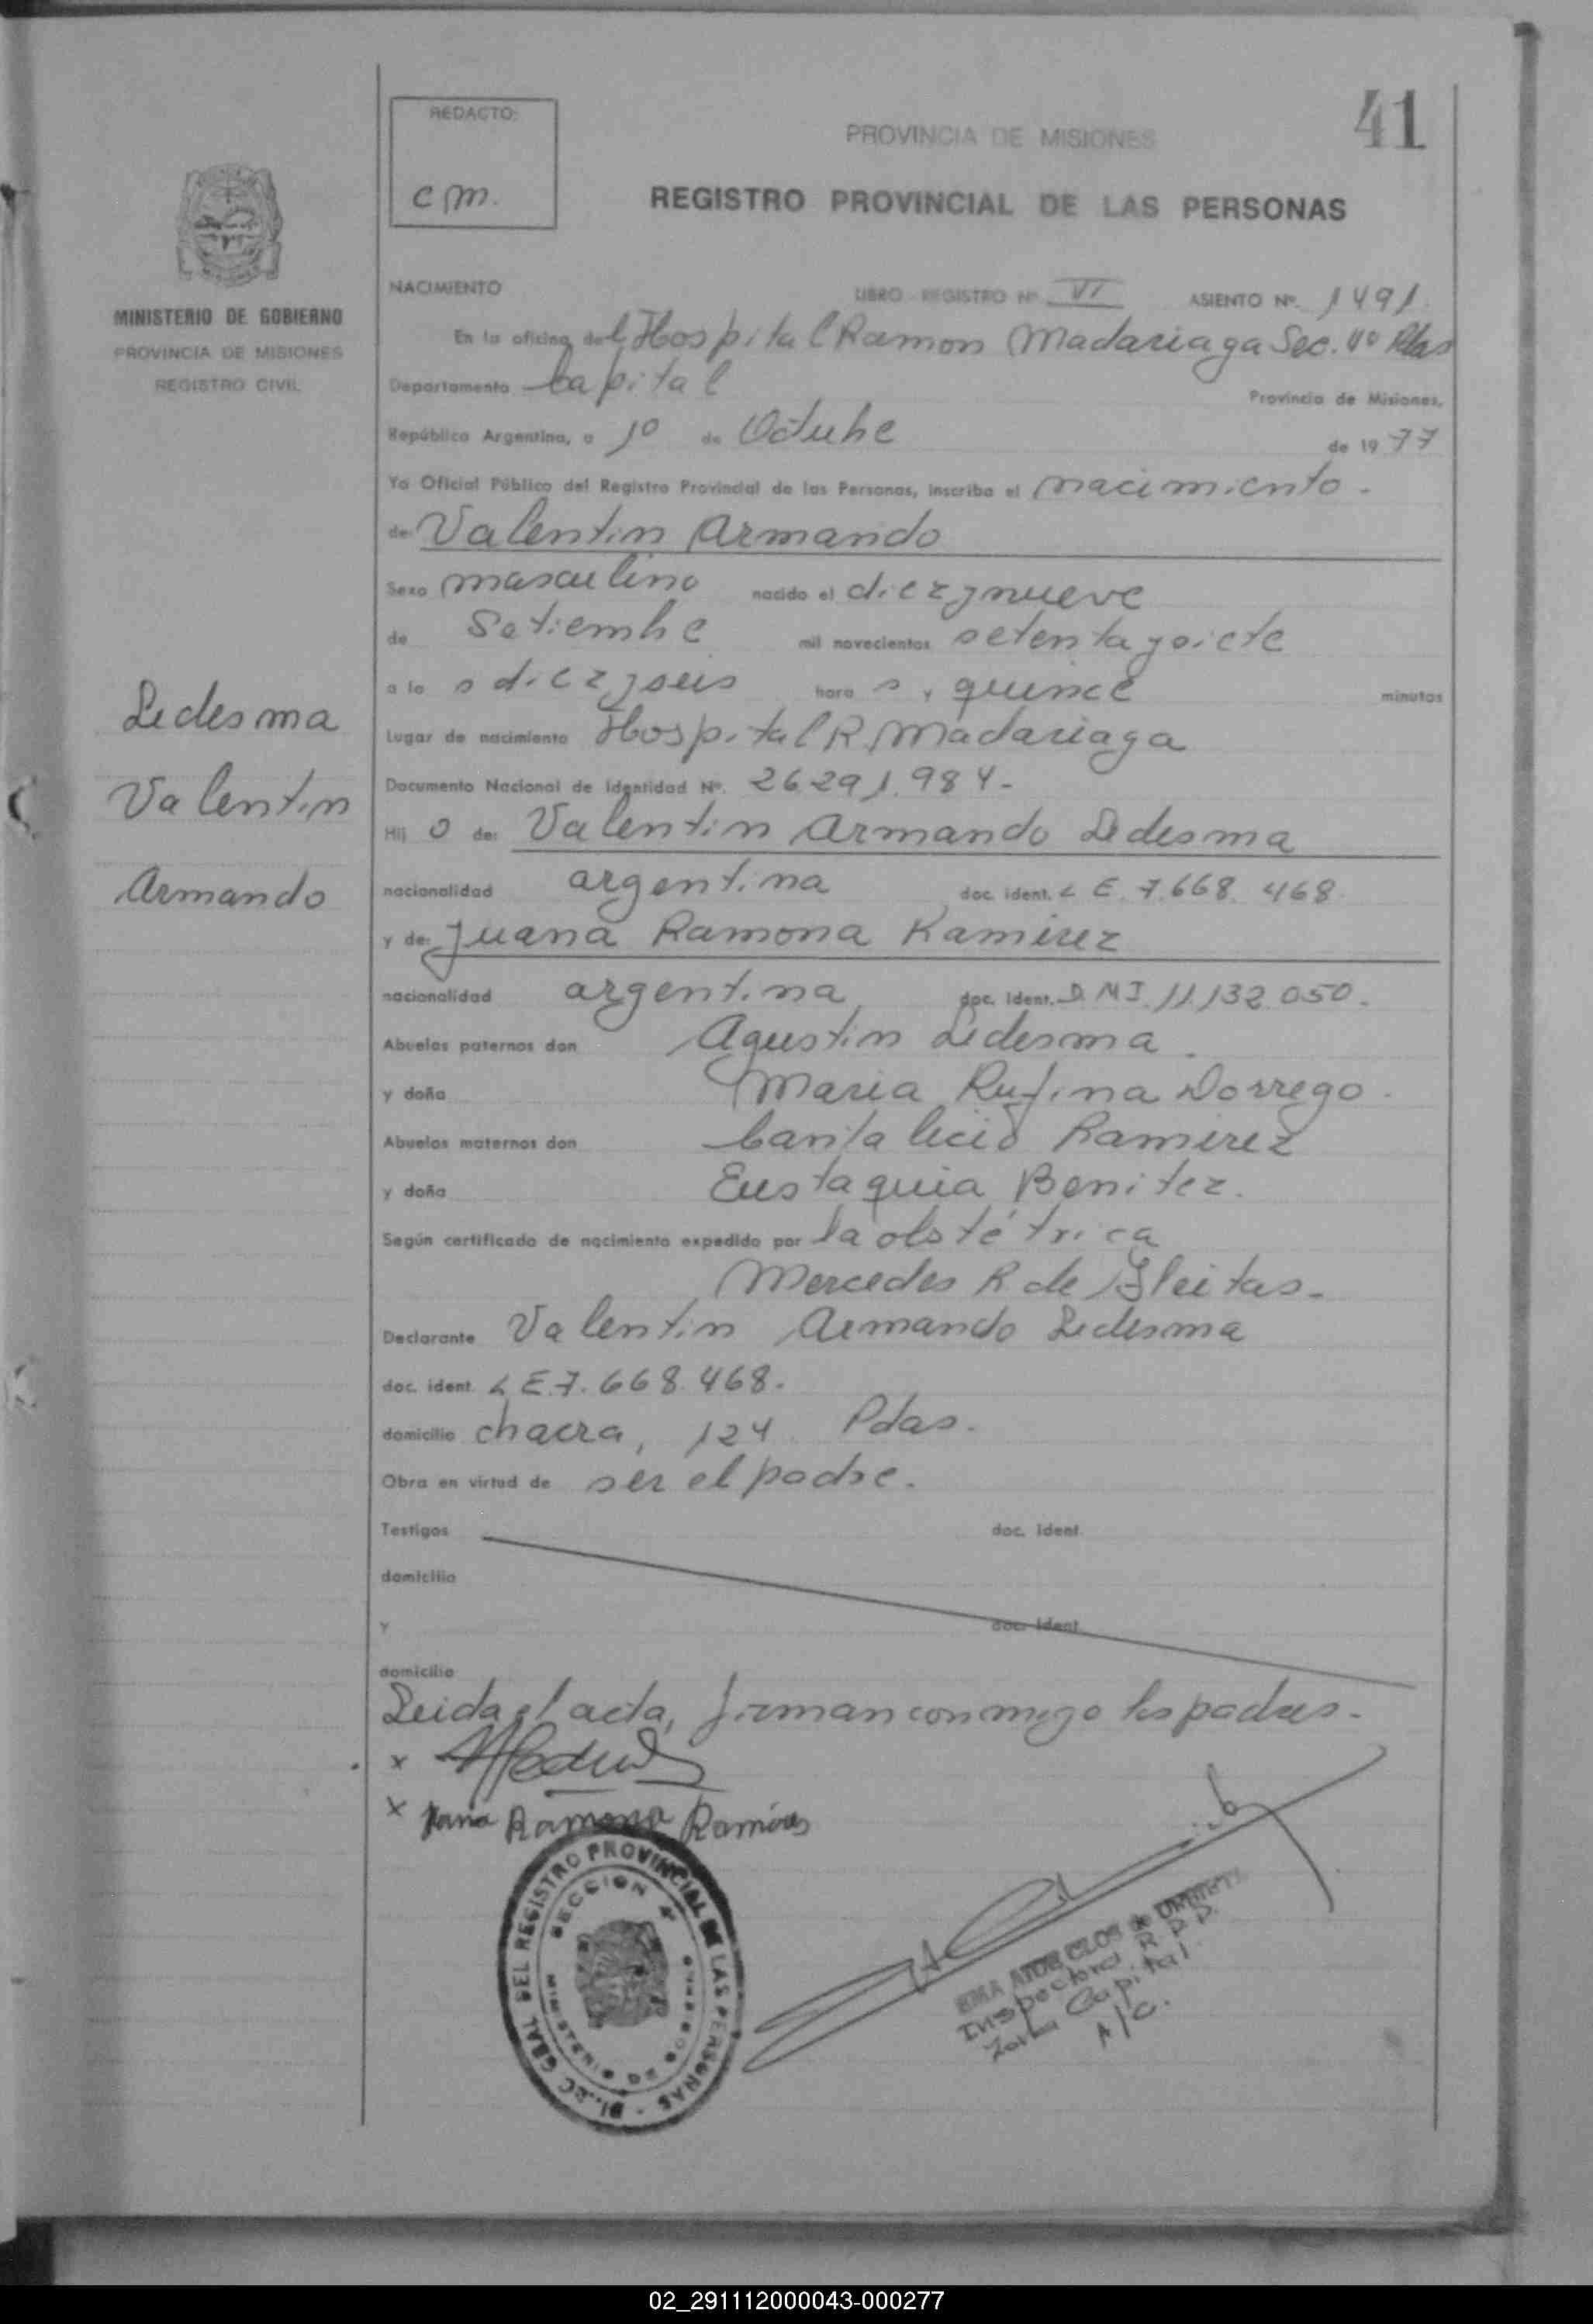 41
REDACTO:
C M.
PROVINCIA DE MISIONES
REGISTRO PROVINCIAL DE LAS PERSONAS
MINISTERIO DE GOBIERNO
PROVINCIA DE MISIONES
REGISTRO CIVIL
Ledesma
Valentin
Armando
NACIMIENTO LIBRO REGISTRO Nº VI ASIENTO Nº. 1491
En la oficina del Hospital Ramon Madariaga Sec. 4º Pdas
Departamento Capital Provincia de Misiones,
República Argentina, a 1º de Octubre de 1977
Yo Oficial Público del Registro Provincial de las Personas, inscribo el nacimiento.
de: Valentin Armando
Sexo masculino nacido el diez y nueve
de Setiembre mil novecientos setenta y siete
a la s diez y seis hora s y quince minutos
Lugar de nacimiento Hospital R. Madariaga
Documento Nacional de Identidad Nº. 26.291.984-
Hij o de: Valentin Armando Ledesma
nacionalidad argentina doc. ident. L E. 7.668.468
y de: Juana Ramona Ramirez
nacionalidad argentina doc. ident. D.N.I. 11.132.050.
Abuelos paternos don Agustin Ledesma.
y doña Maria Rufina Dorrego.
Abuelos maternos don Cantalicio Ramirez
y doña Eustaquia Benitez.
Según certificado de nacimiento expedido por la obstétrica
Mercedes R de Gleitas.
Declarante Valentin Armando Ledesma
doc. ident. L E. 7.668.468.
domicilio chacra, 124 Pdas.
Obra en virtud de ser el padre.
Testigos doc. ident.
domicilio
y doc. ident.
domicilio
Leida el acta, firman conmigo los padres.
x
x Ramona Ramires
DIREC GRAL DEL REGISTRO PROVINCIAL DE LAS PERSONAS
SECCION 4ª
MINISTERIO DE GOBIERNO
Inspectora R.P.P.
Zona Capital
A/C.
02_291112000043-000277